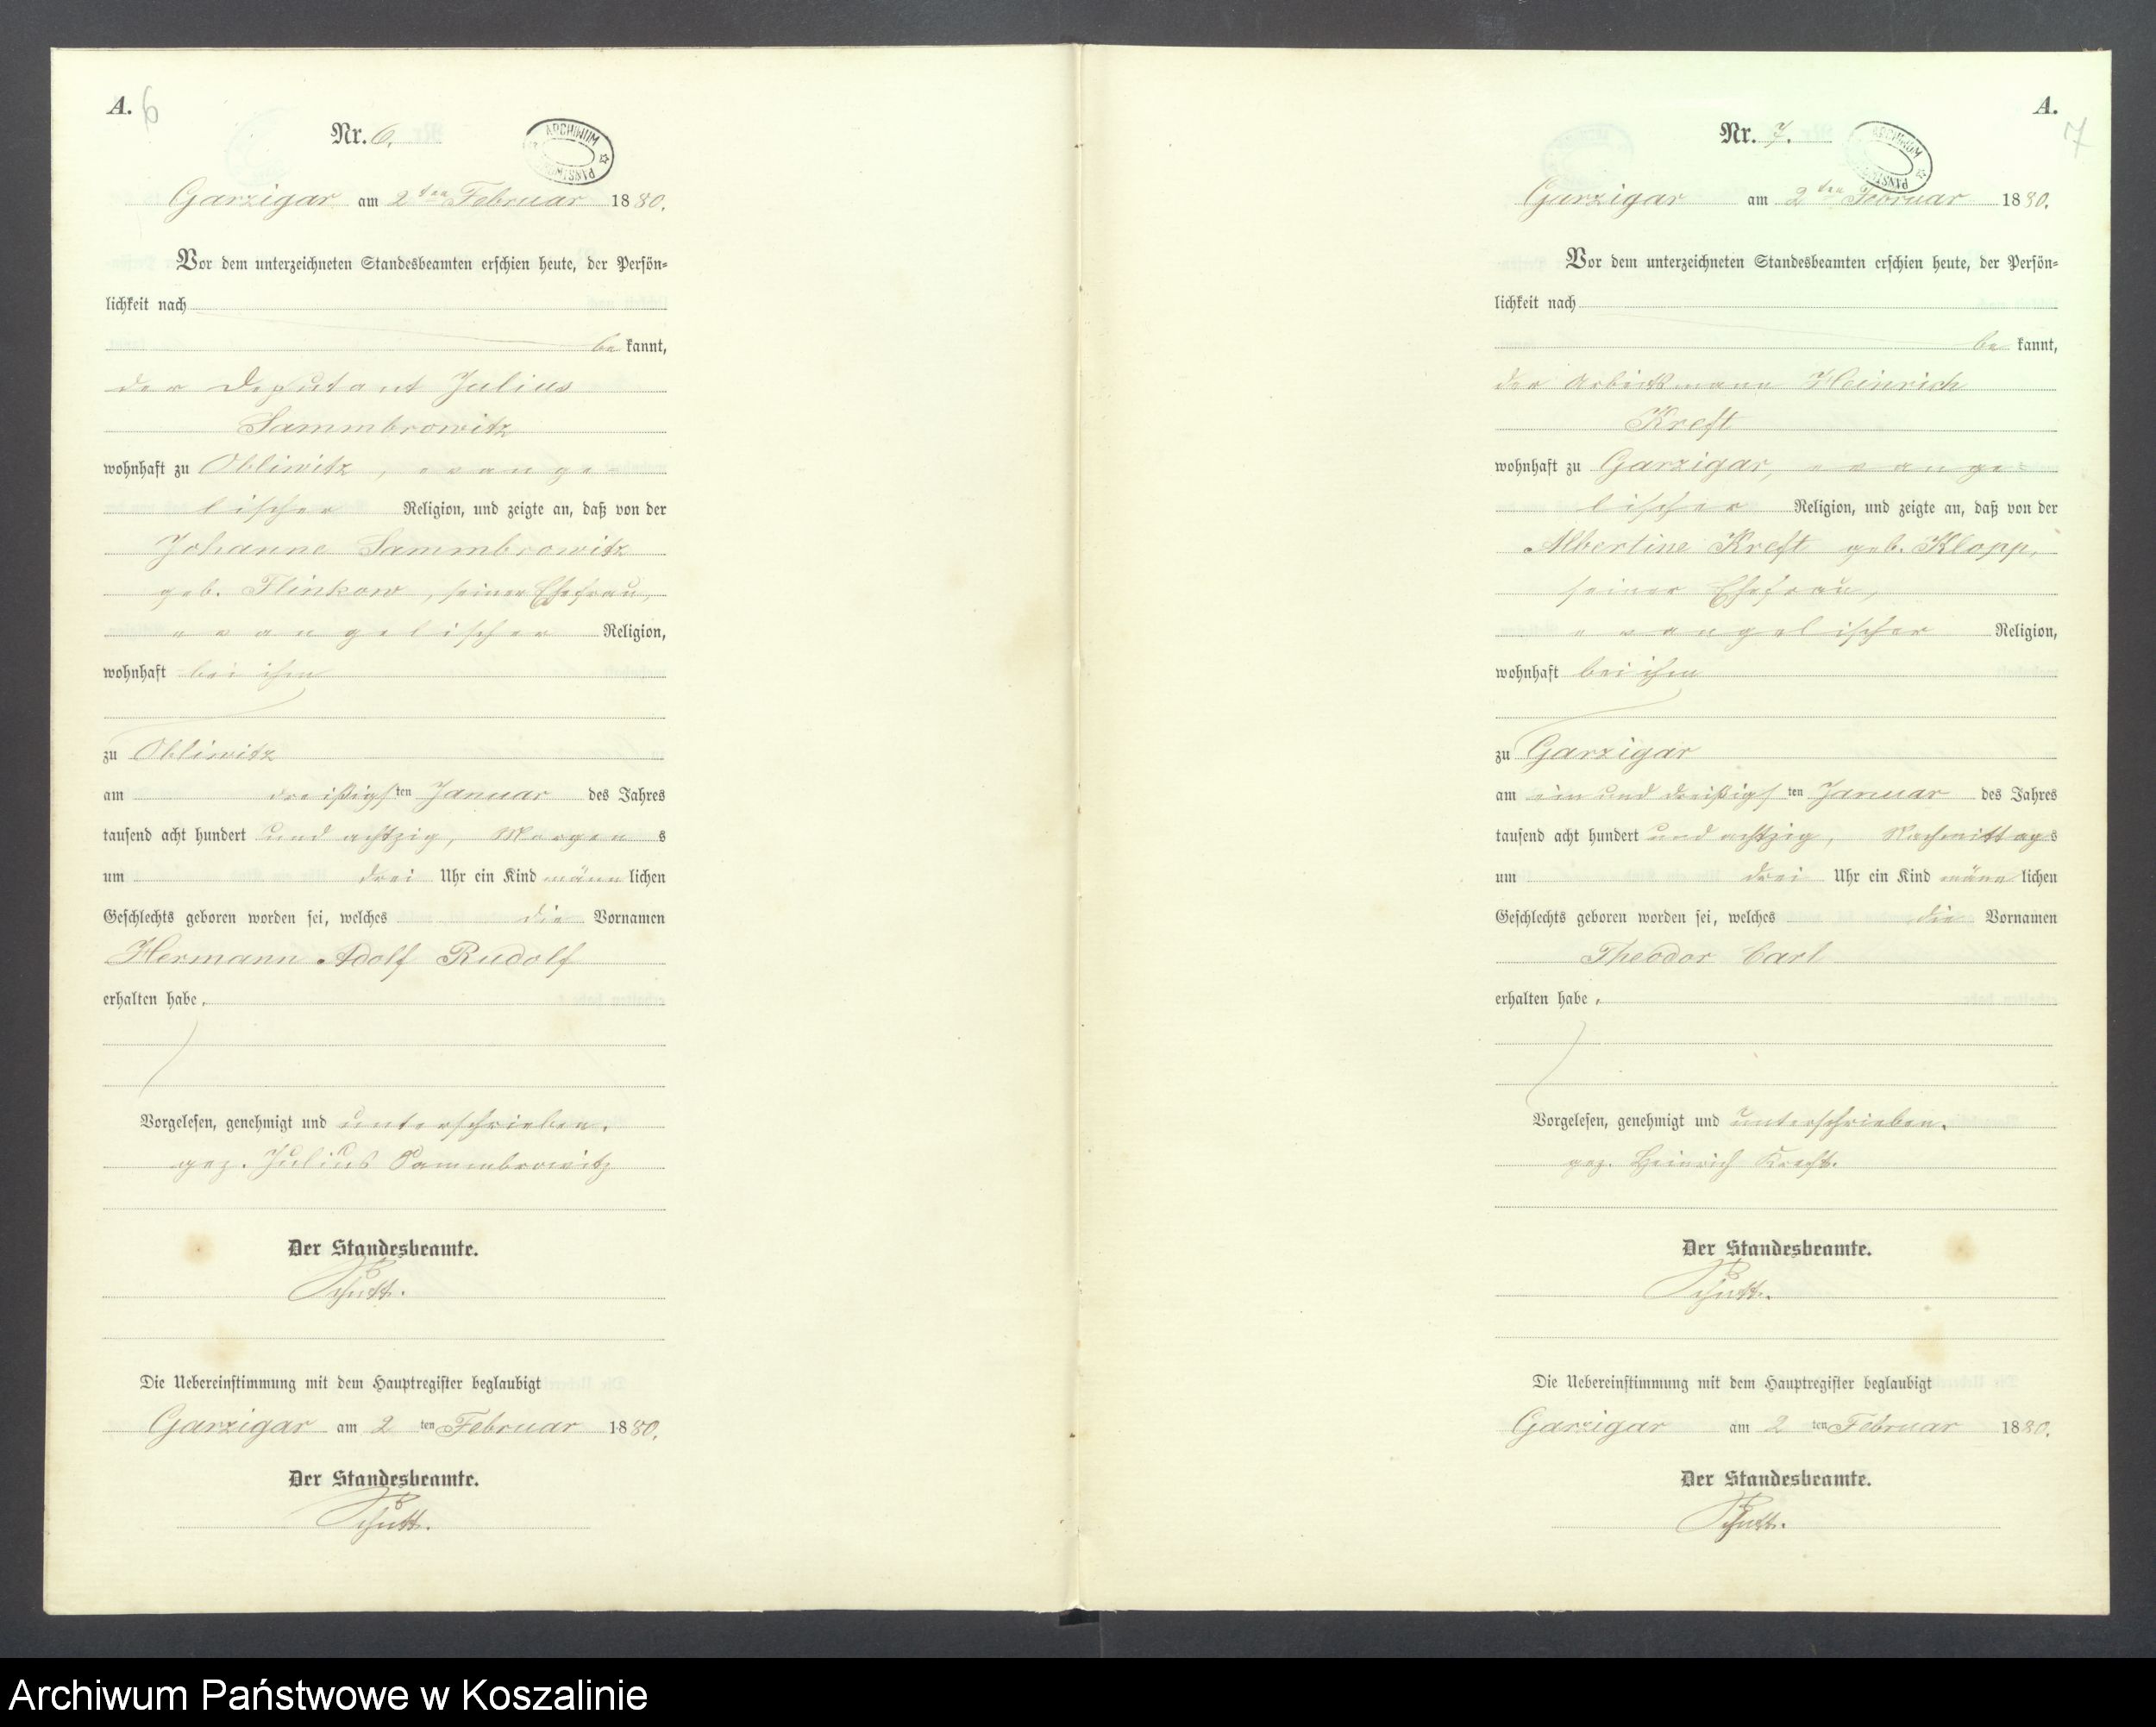 A. 6
Nr. 6.
ARCHIWUM
PAŃSTWOWE
Garzigar am 2ten Februar 1880.
Vor dem unterzeichneten Standesbeamten erschien heute, der Persön-
lichkeit nach
be kannt,
der Deputant Julius
Sammbrowitz
wohnhaft zu Obliwitz, evange-
lischer Religion, und zeigte an, daß von der
Johanne Sammbrowitz
geb. Flinkow, seiner Ehefrau,
evangelischer Religion,
wohnhaft bei ihm
zu Obliwitz
am dreißigsten Januar des Jahres
tausend acht hundert und achtzig, Morgens
um drei Uhr ein Kind männlichen
Geschlechts geboren worden sei, welches die Vornamen
Hermann Adolf Rudolf
erhalten habe.
Vorgelesen, genehmigt und unterschrieben.
gez. Julius Sammbrowitz
Der Standesbeamte.
Schütt.
Die Uebereinstimmung mit dem Hauptregister beglaubigt
Garzigar am 2ten Februar 1880.
Der Standesbeamte.
Schütt.
A.
7
Nr. 7.
ARCHIWUM
PAŃSTWOWE
Garzigar am 2ten Februar 1880.
Vor dem unterzeichneten Standesbeamten erschien heute, der Persön-
lichkeit nach
be kannt,
der Arbeitsmann Heinrich
Kreft
wohnhaft zu Garzigar, evange-
lischer Religion, und zeigte an, daß von der
Albertine Kreft geb. Klopp,
seiner Ehefrau,
evangelischer Religion,
wohnhaft bei ihm
zu Garzigar
am ein und dreißigsten Januar des Jahres
tausend acht hundert und achtzig, Nachmittags
um drei Uhr ein Kind männlichen
Geschlechts geboren worden sei, welches die Vornamen
Theodor Carl
erhalten habe.
Vorgelesen, genehmigt und unterschrieben.
gez. Heinrich Kreft.
Der Standesbeamte.
Schütt.
Die Uebereinstimmung mit dem Hauptregister beglaubigt
Garzigar am 2ten Februar 1880.
Der Standesbeamte.
Schütt.
Archiwum Państwowe w Koszalinie